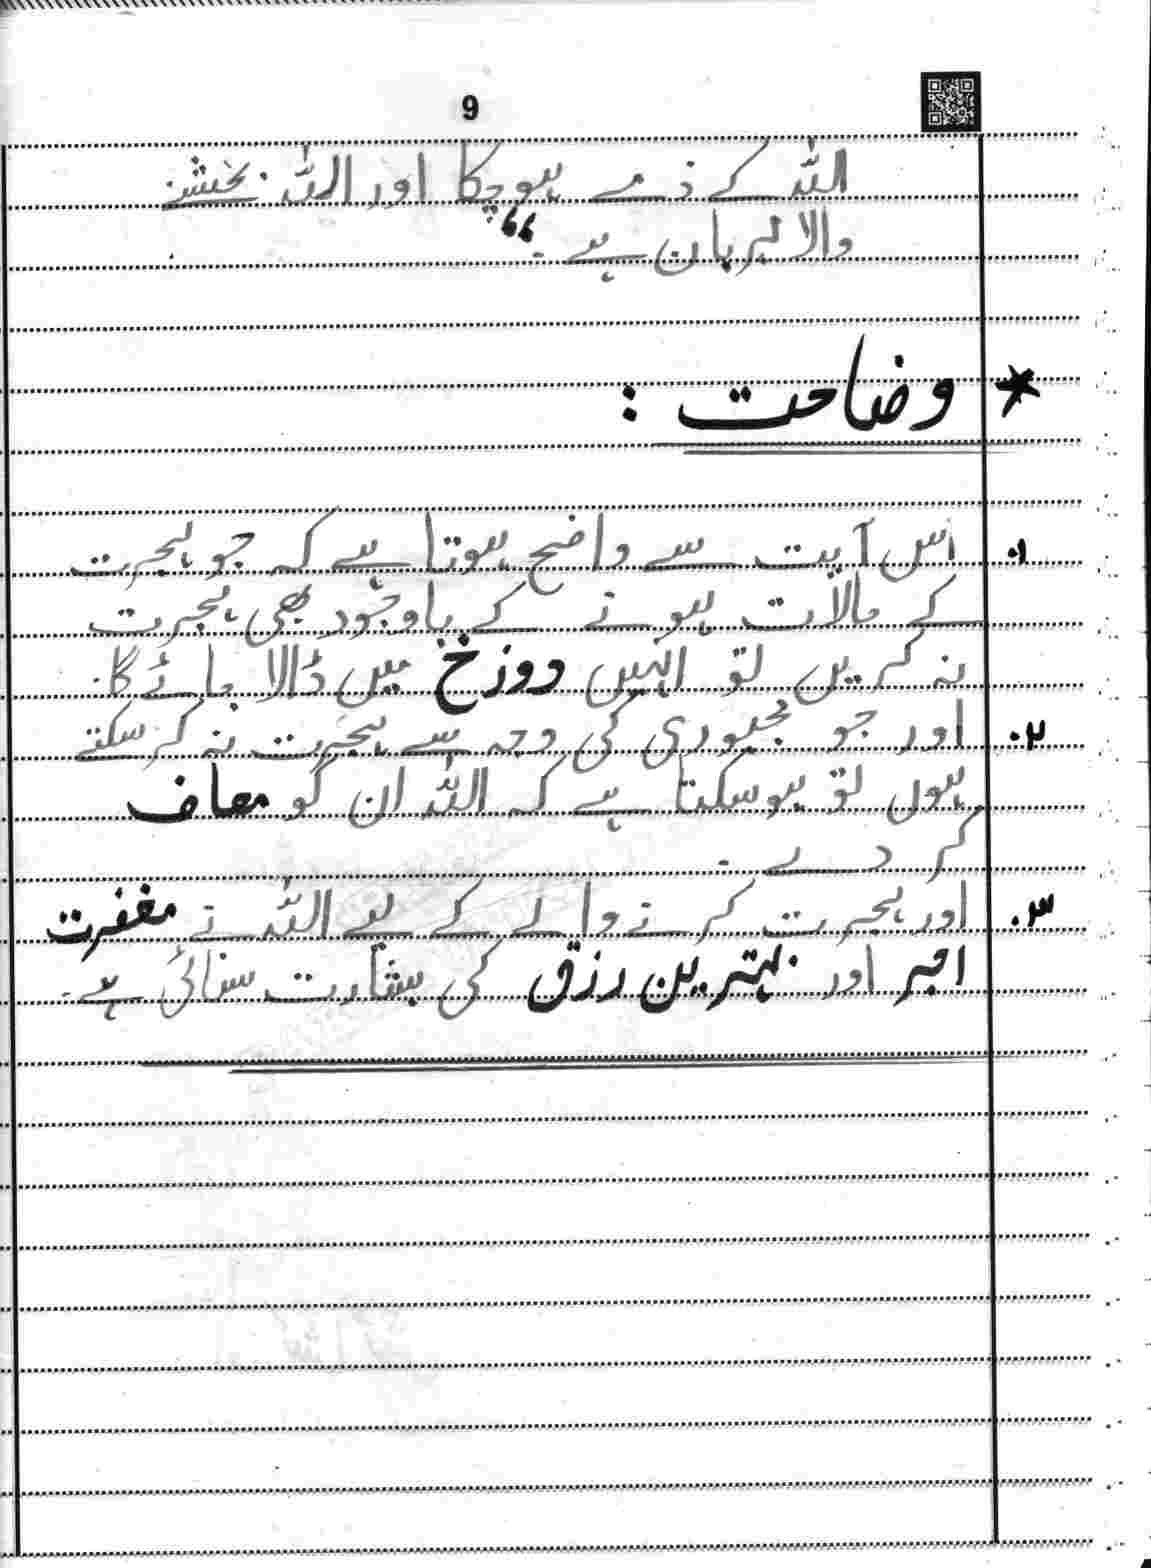 9
اللہ کے ذمے ہوچکا اور اللہ بخشنے
والا مہربان ہے۔“
* وضاحت :
۱۔ اس آیت سے واضح ہوتا ہے کہ جو ہجرت
کے حالات ہونے کے باوجود بھی ہجرت
نہ کریں تو انہیں دوزخ میں ڈالا جائے گا۔
۲۔ اور جو مجبوری کی وجہ سے ہجرت نہ کرسکتے
ہوں تو ہوسکتا ہے کہ اللہ ان کو معاف
کر دے۔
۳۔ اور ہجرت کرنے والے کے لیے اللہ نے مغفرت
اجر اور بہترین رزق کی بشارت سنائی ہے۔